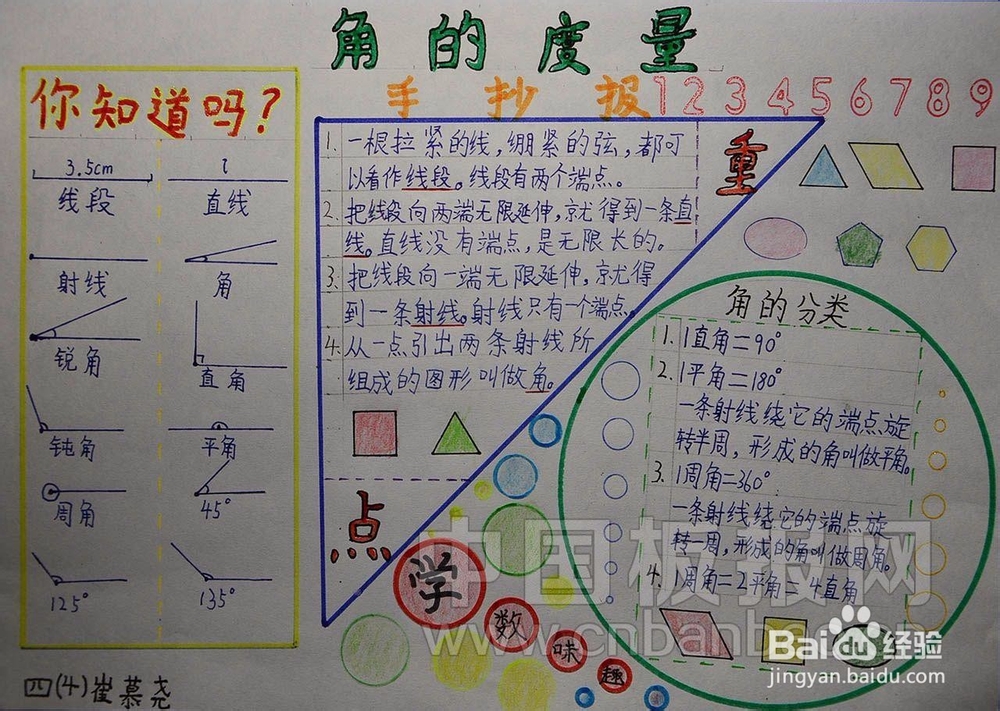 角的度量
手抄报
1 2 3 4 5 6 7 8 9
你知道吗?
3.5cm
线段
l
直线
射线
角
锐角
直角
钝角
平角
周角
45°
125°
135°
四(4)崔慕尧
重
点
1. 一根拉紧的线,绷紧的弦,都可
以看作线段。线段有两个端点。
2. 把线段向两端无限延伸,京尤得到一条直
线。直线没有端点,是无限长的。
3. 把线段向一端无限延伸,京尤得
到一条射线。射线只有一个端点。
4. 从一点引出两条射线所
组成的图形叫做角。
角的分类
1. 1直角=90°
2. 1平角=180°
一条射线绕它的端点旋
转半周,形成的角叫做平角。
3. 1周角=360°
一条射线绕它的端点旋
转一周,形成的角叫做周角。
4. 1周角=2平角=4直角
学
数
味
趣
中国板报网
www.cnbanb
Bai du 经验
jingyan.baidu.com